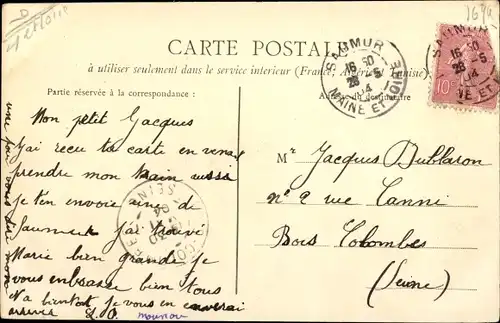 1694
CARTE POSTALE
à utiliser seulement dans le service interieur (France, Algérie, Tunisie).
Partie réservée à la correspondance :
Adresse du destinataire
SAUMUR
16 30
26 -5
04
MAINE ET LOIRE
SAUMUR
16 30
26 -5
04
MAINE ET
10
Mon petit Jacques
j'ai recu ta carte en venant
prendre mon train aussi
je t'en envoie une de
Saumur j'ai trouvé
Marie bien grande je
vous embrasse bien tous
A bientot je vous en enverai
arrivée
SEINE
Mr Jacques Dublaron
no 2 rue Canni
Bois Colombes
(Seine)